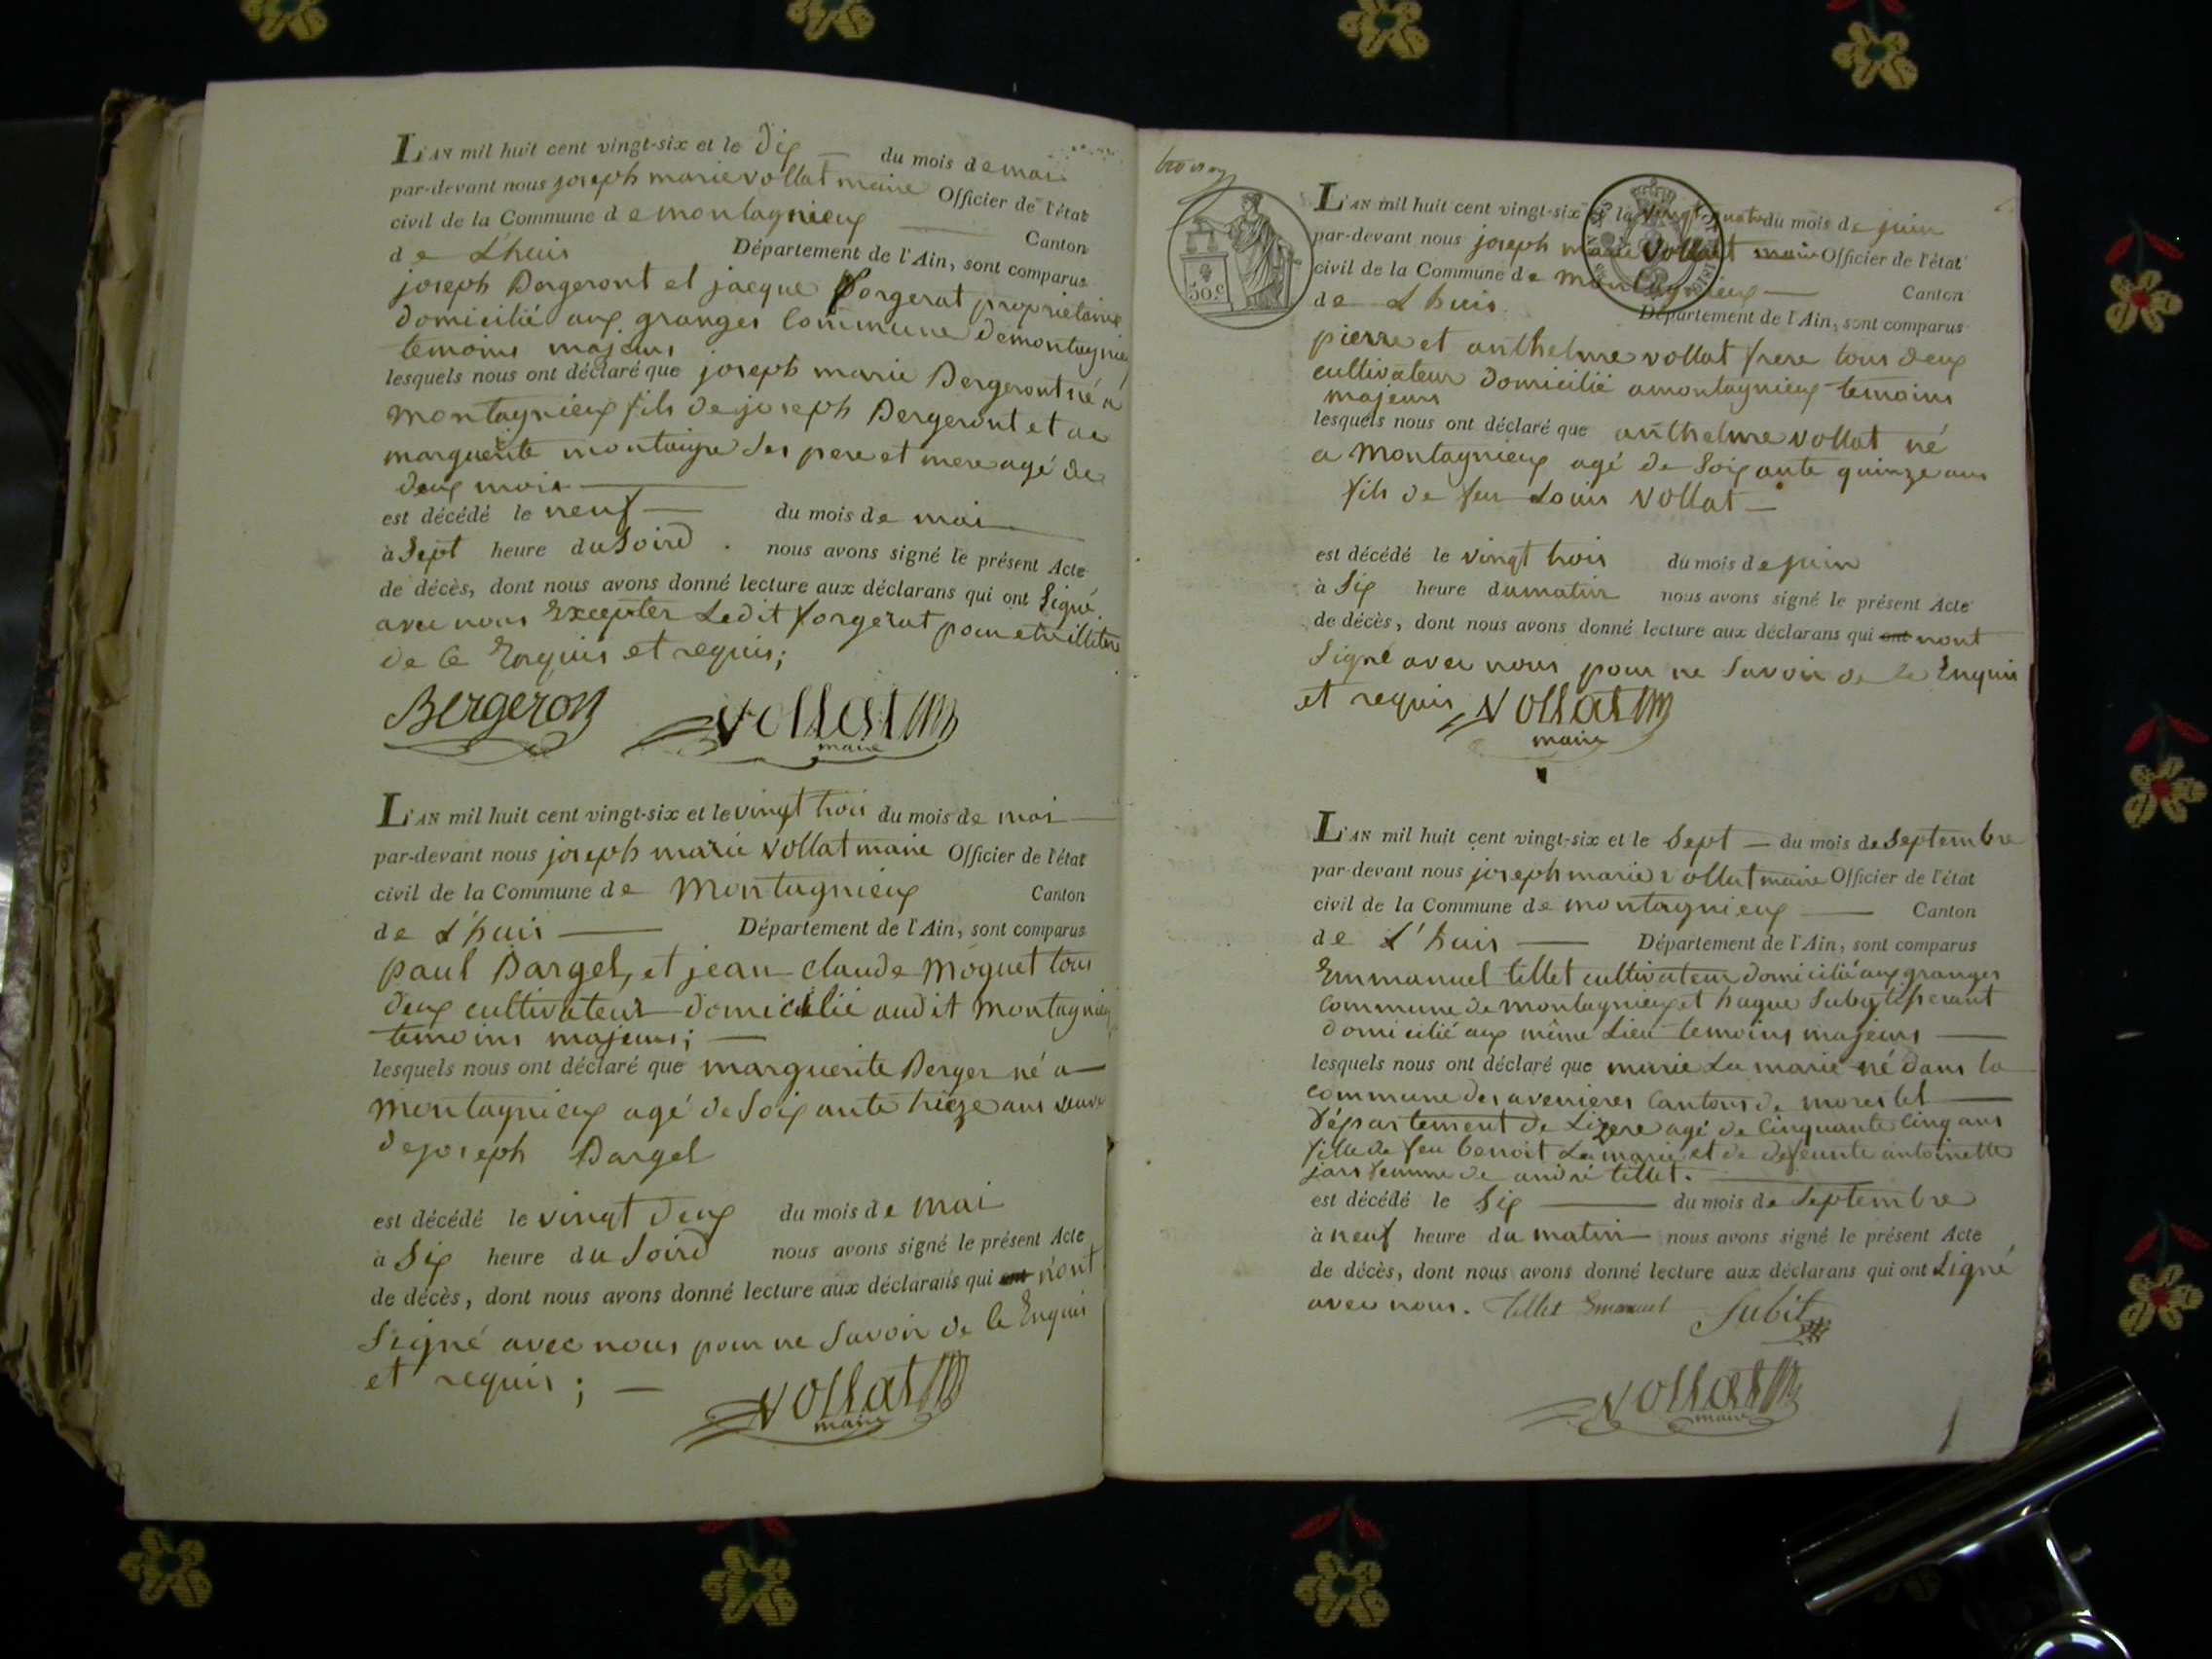 L'AN mil huit cent vingt-six et le dix — du mois de mai
par-devant nous joseph marie vollat maire Officier de l'état
civil de la Commune de montagnieux — Canton
de L'huis Département de l'Ain, sont comparus
joseph Bergeront et jacque forgerat proprietaire
domicilié aux granges Commune de montagnieu
temoins majeurs
lesquels nous ont déclaré que joseph marie Bergeront né a
montagnieux fils de joseph Bergeront et de
marguerite montaigre ses pere et mere agé de
deux mois —
est décédé le neuf — du mois de mai —
à Sept heure du Soird . nous avons signé le présent Acte
de décès, dont nous avons donné lecture aux déclarans qui ont Signé
avec nous Excepter Ledit forgerat pour illitere
de ce Enquis et requis;
Bergeron vollat
maire
L'AN mil huit cent vingt-six et le vingt trois du mois de mai —
par-devant nous joseph marie vollat maire Officier de l'état
civil de la Commune de Montagnieux Canton
de L'huis — Département de l'Ain, sont comparus
paul Bargel, et jean claude Moguet tous
deux cultivateur domicilié audit Montagnieux
temoins majeurs; —
lesquels nous ont déclaré que marguerite Berger né a —
Montagnieux agé de Soixante treize ans veuve
de joseph Bargel
est décédé le vingt deux du mois de mai
à Six heure du Soird nous avons signé le présent Acte
de décès, dont nous avons donné lecture aux déclarans qui ont n'ont
Signé avec nous pour ne Savoir de ce Enquis
et requis ; —
vollat
maire
50.c
L'AN mil huit cent vingt-six et le vingt quatre du mois de juin
par-devant nous joseph marie vollat maire Officier de l'état
civil de la Commune de Montagnieux — Canton
de L huis. Département de l'Ain, sont comparus
pierre et anthelme vollat frere tous deux
cultivateur domicilié a montagnieux temoins
majeurs
lesquels nous ont déclaré que anthelme vollat né
a Montagnieux agé de Soixante quinze ans
fils de feu Louis vollat —
est décédé le vingt trois du mois de juin
à Six heure du matin nous avons signé le présent Acte
de décès, dont nous avons donné lecture aux déclarans qui ont nont
Signé avec nous pour ne Savoir de ce Enquis
et requis vollat
maire
L'AN mil huit cent vingt-six et le Sept — du mois de Septembre
par-devant nous joseph marie vollat maire Officier de l'état
civil de la Commune de montagnieux — Canton
de L'huis — Département de l'Ain, sont comparus
Emmanuel tillet cultivateur domicilié aux granges
Commune de montagnieux et hugue Suby tisserant
domicilié aux même Lieu temoins majeurs —
lesquels nous ont déclaré que marie La marie né dans la
commune des avenieres Cantons de morestel —
Département de Lizere agé de Cinquante Cinq ans
fille de feu benoit La marie et de defeunte antoinette
jars femme de andré tillet. —
est décédé le Six — du mois de Septembre
à neuf heure du matin — nous avons signé le présent Acte
de décès, dont nous avons donné lecture aux déclarans qui ont Signé
avec nous. tillet Emanuel Subit
vollat
maire